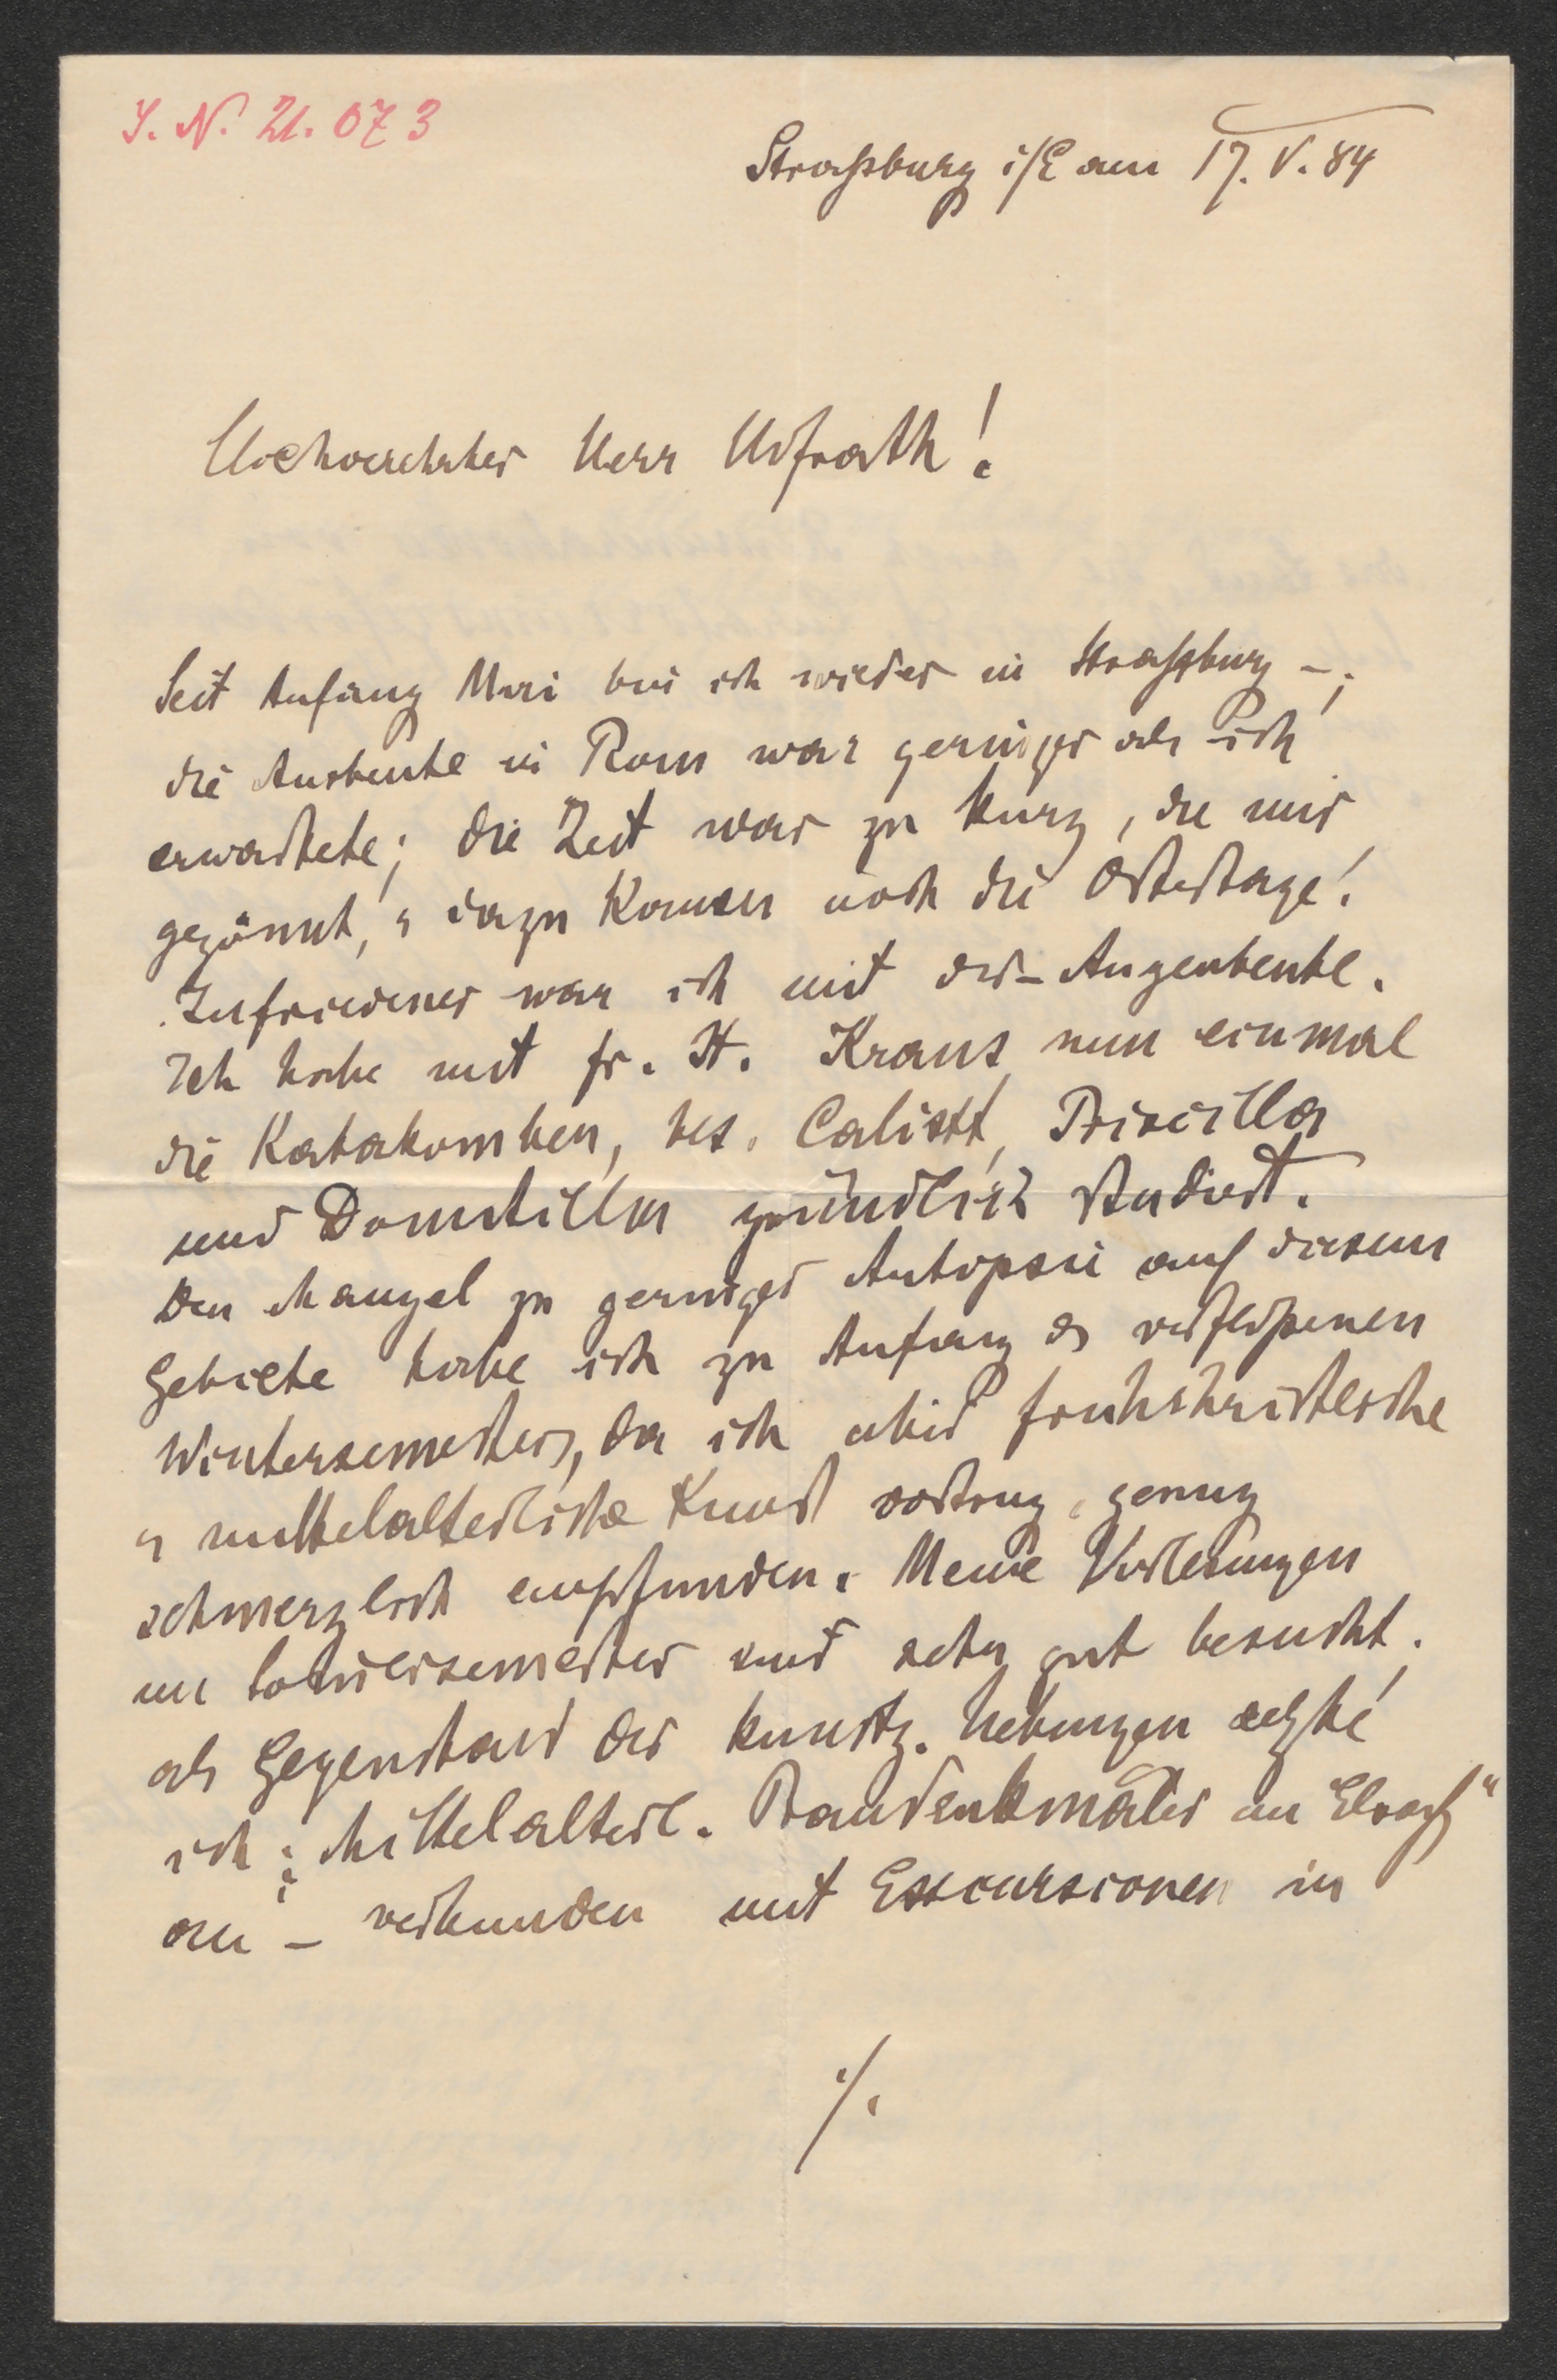 I. N. 21.073
Straßburg i/E am 17. V. 84
Hochverehrter Herr Hofrath!
Seit Anfang Mai bin ich wieder in Straßburg –;
die Ausbeute in Rom war geringer als ich
erwartete; die Zeit war zu kurz, die mir
gegönnt, u dazu kamen noch die Ostertage!
Zufriedener war ich mit der Augenbeute.
Ich habe mit Fr. X. Kraus nun einmal
die Katakomben, bes. Calixt, Priscilla
und Domitilla gründlich studiert.
Den Mangel zu geringer Autopsie auf diesem
Gebiete habe ich zu Anfang des verflossenen
Wintersemesters, da ich über frühchristliche
u mittelalterliche Kunst vortrug, genug
schmerzlich empfunden. Meine Vorlesungen
im Sommersemester sind sehr gut besucht.
als Gegenstand der kunstg. Uebungen setzte
ich: Mittelalterl. Baudenkmäler im Elsaß"
an – verbunden mit Excursionen in
./.